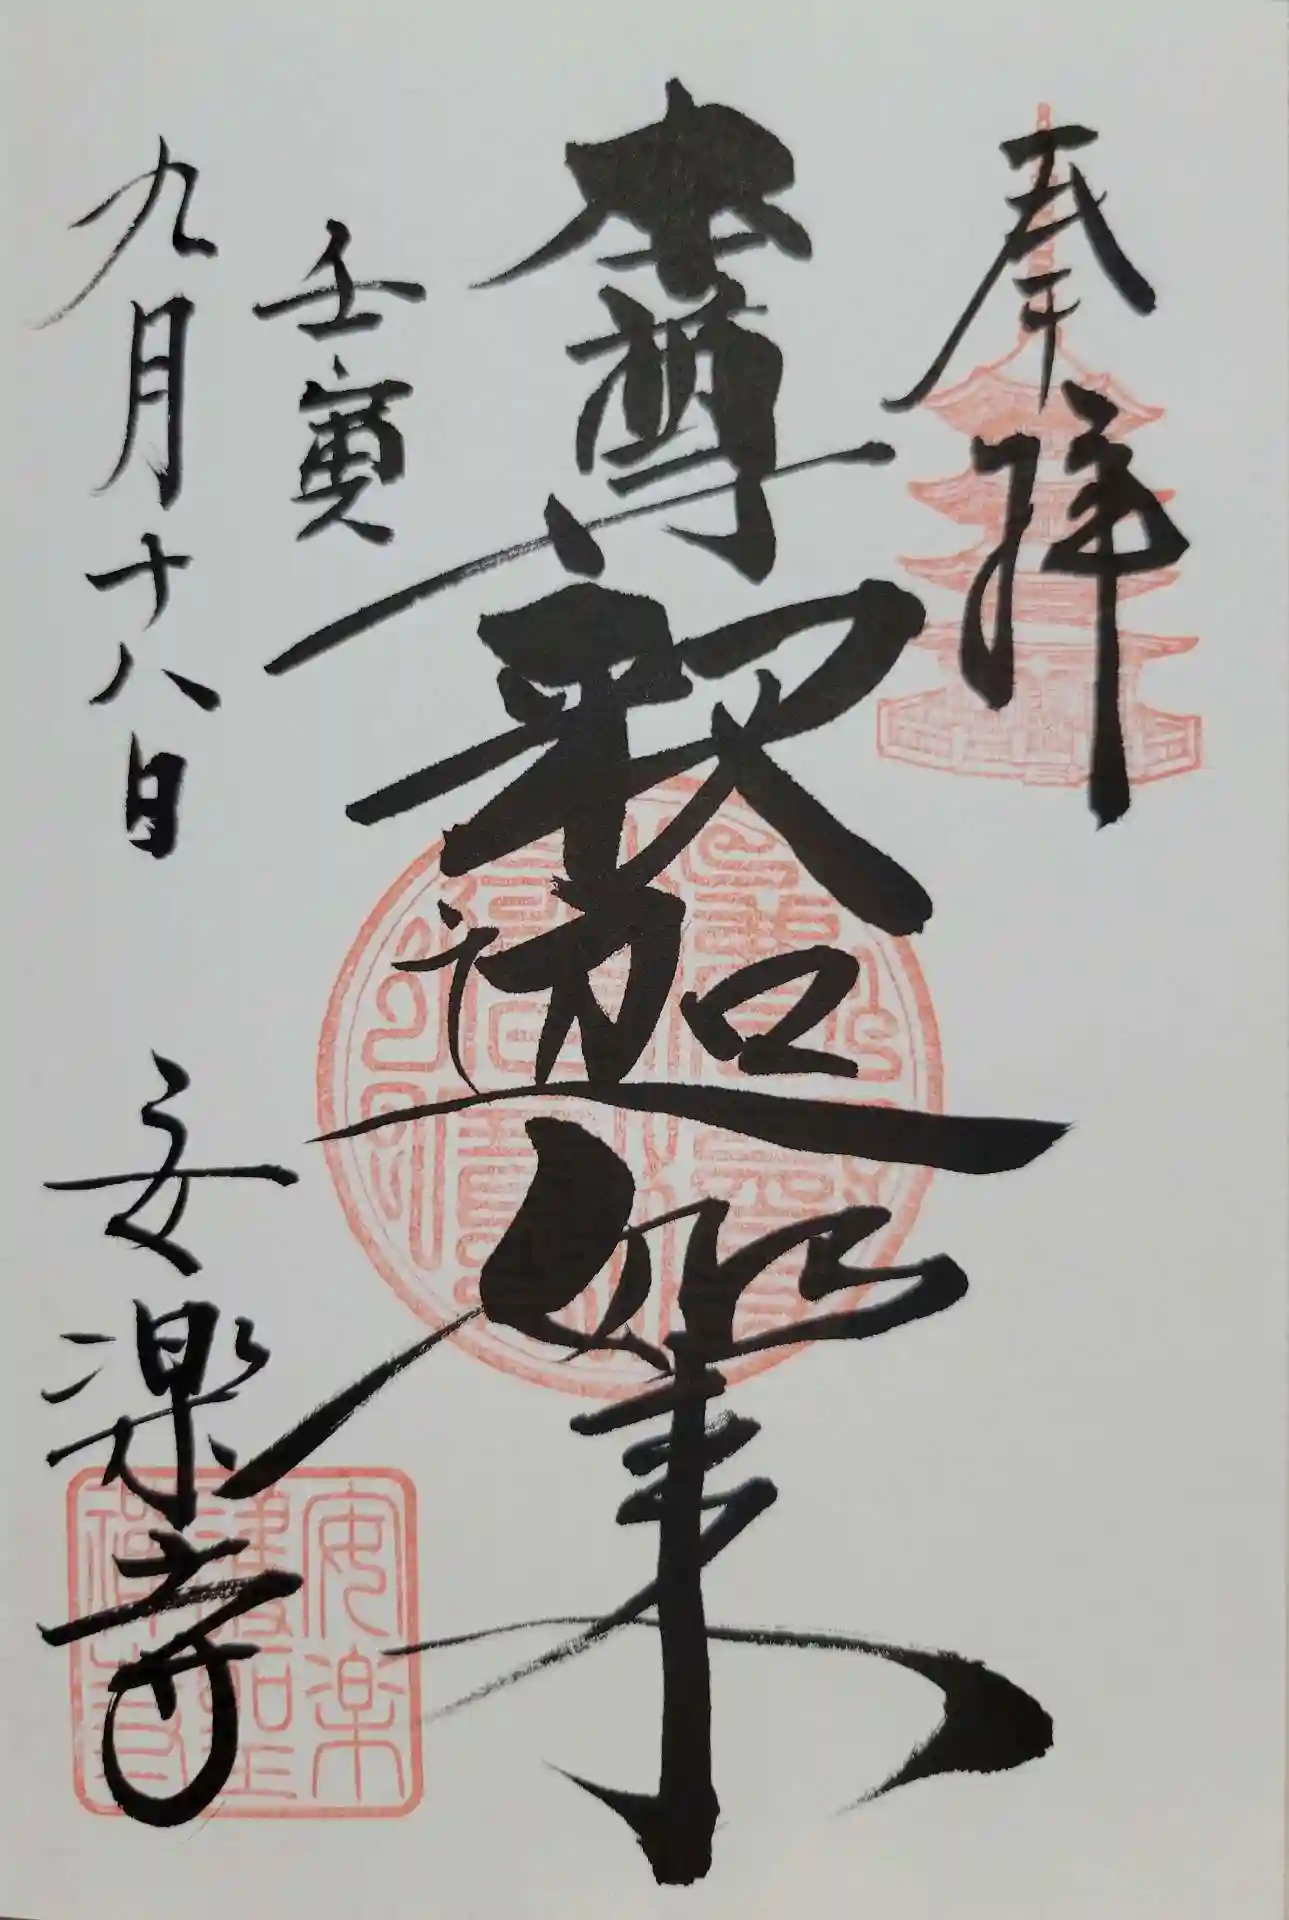 奉拝
本尊釈迦如来
壬寅
九月十八日 安楽寺
安楽
護聖
禅寺